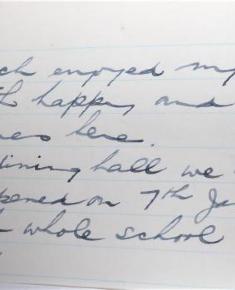 ch enjoyed my
th happy and
nes here.
dining hall we
pened on 7th Ja
whole school